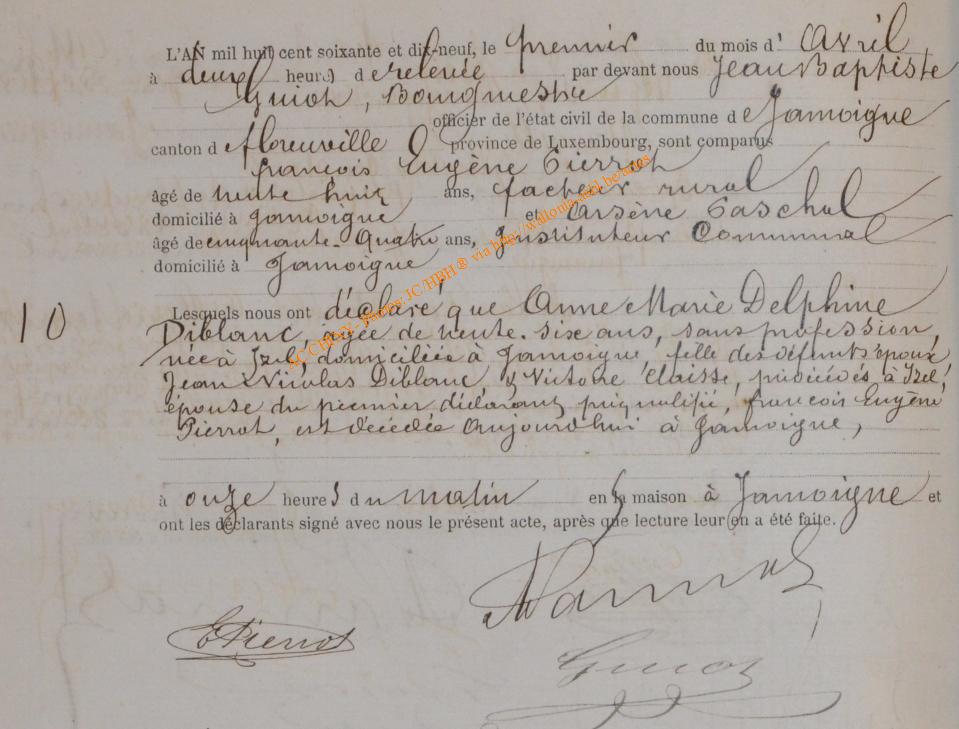 L'AN mil huit cent soixante et dix-neuf, le premier du mois d' avril
à deux heures de relevée par devant nous Jean Baptiste
Guiot, Bourgmestre
officier de l'état civil de la commune de Jamoigne
canton de florenville province de Luxembourg, sont comparus
françois Eugène Pierrot
âgé de trente huit ans, facteur rural
domicilié à Jamoigne et Arsène Paschal
âgé de cinquante-quatre ans, Instituteur Communal
domicilié à Jamoigne
10
Lesquels nous ont déclaré que Anne Marie Delphine
Diblanc, âgée de trente-six ans, sans profession,
née à Izel, domiciliée à Jamoigne, fille des défunts époux
Jean Nicolas Diblanc & Victoire Claisse, prédécédés à Izel,
épouse du premier déclarant, préqualifié, françois Eugène
Pierrot, est décédée aujourd'hui à Jamoigne,
à onze heures du matin en sa maison à Jamoigne et
ont les déclarants signé avec nous le présent acte, après que lecture leur en a été faite.
EPierrot
Guiot
via http://wallonia.asbl.be/actes